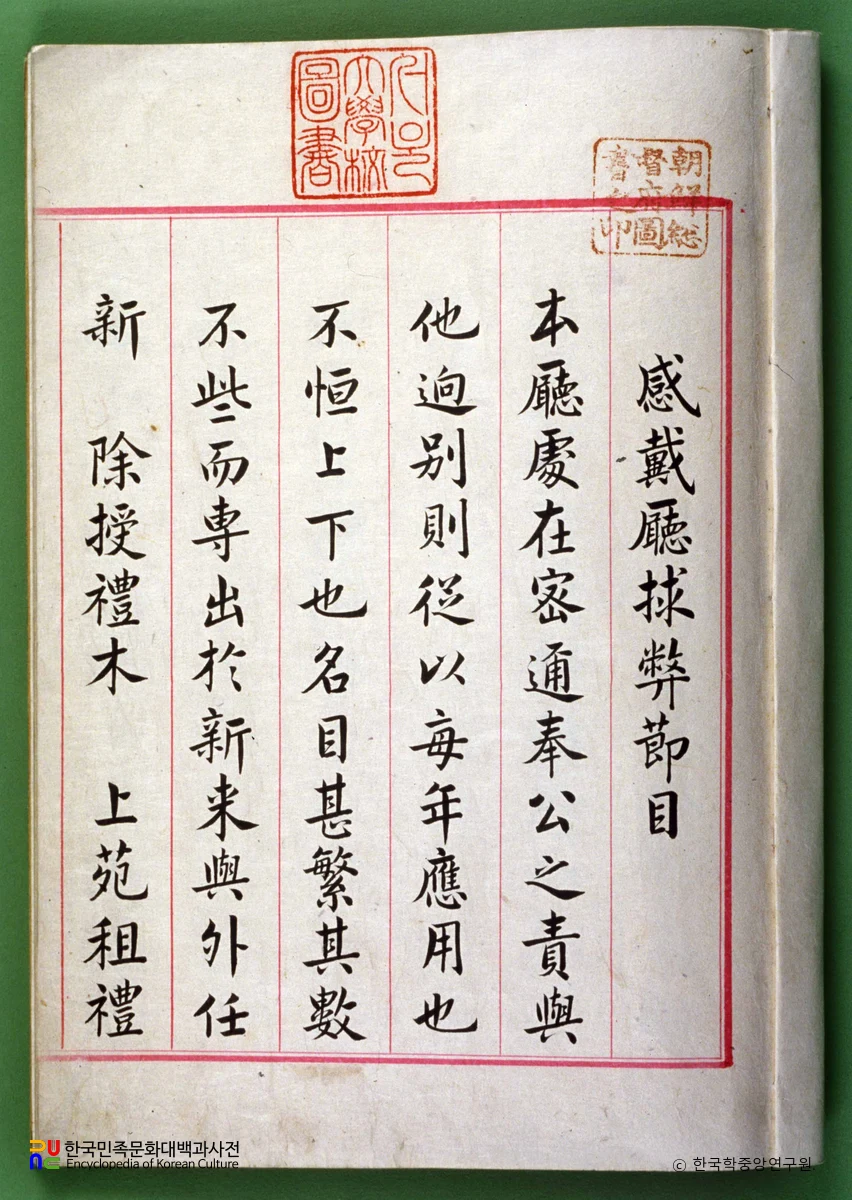 서울
大學校
圖書
朝鮮総
督府圖
書之印
感戴廳捄弊節目
本廳處在密邇奉公之責與
他逈别則從以每年應用也
不恒上下也名目甚繁其數
不些而專出於新来與外任
新 除授禮木 上苑租禮
한국민족문화대백과사전
Encyclopedia of Korean Culture
© 한국학중앙연구원